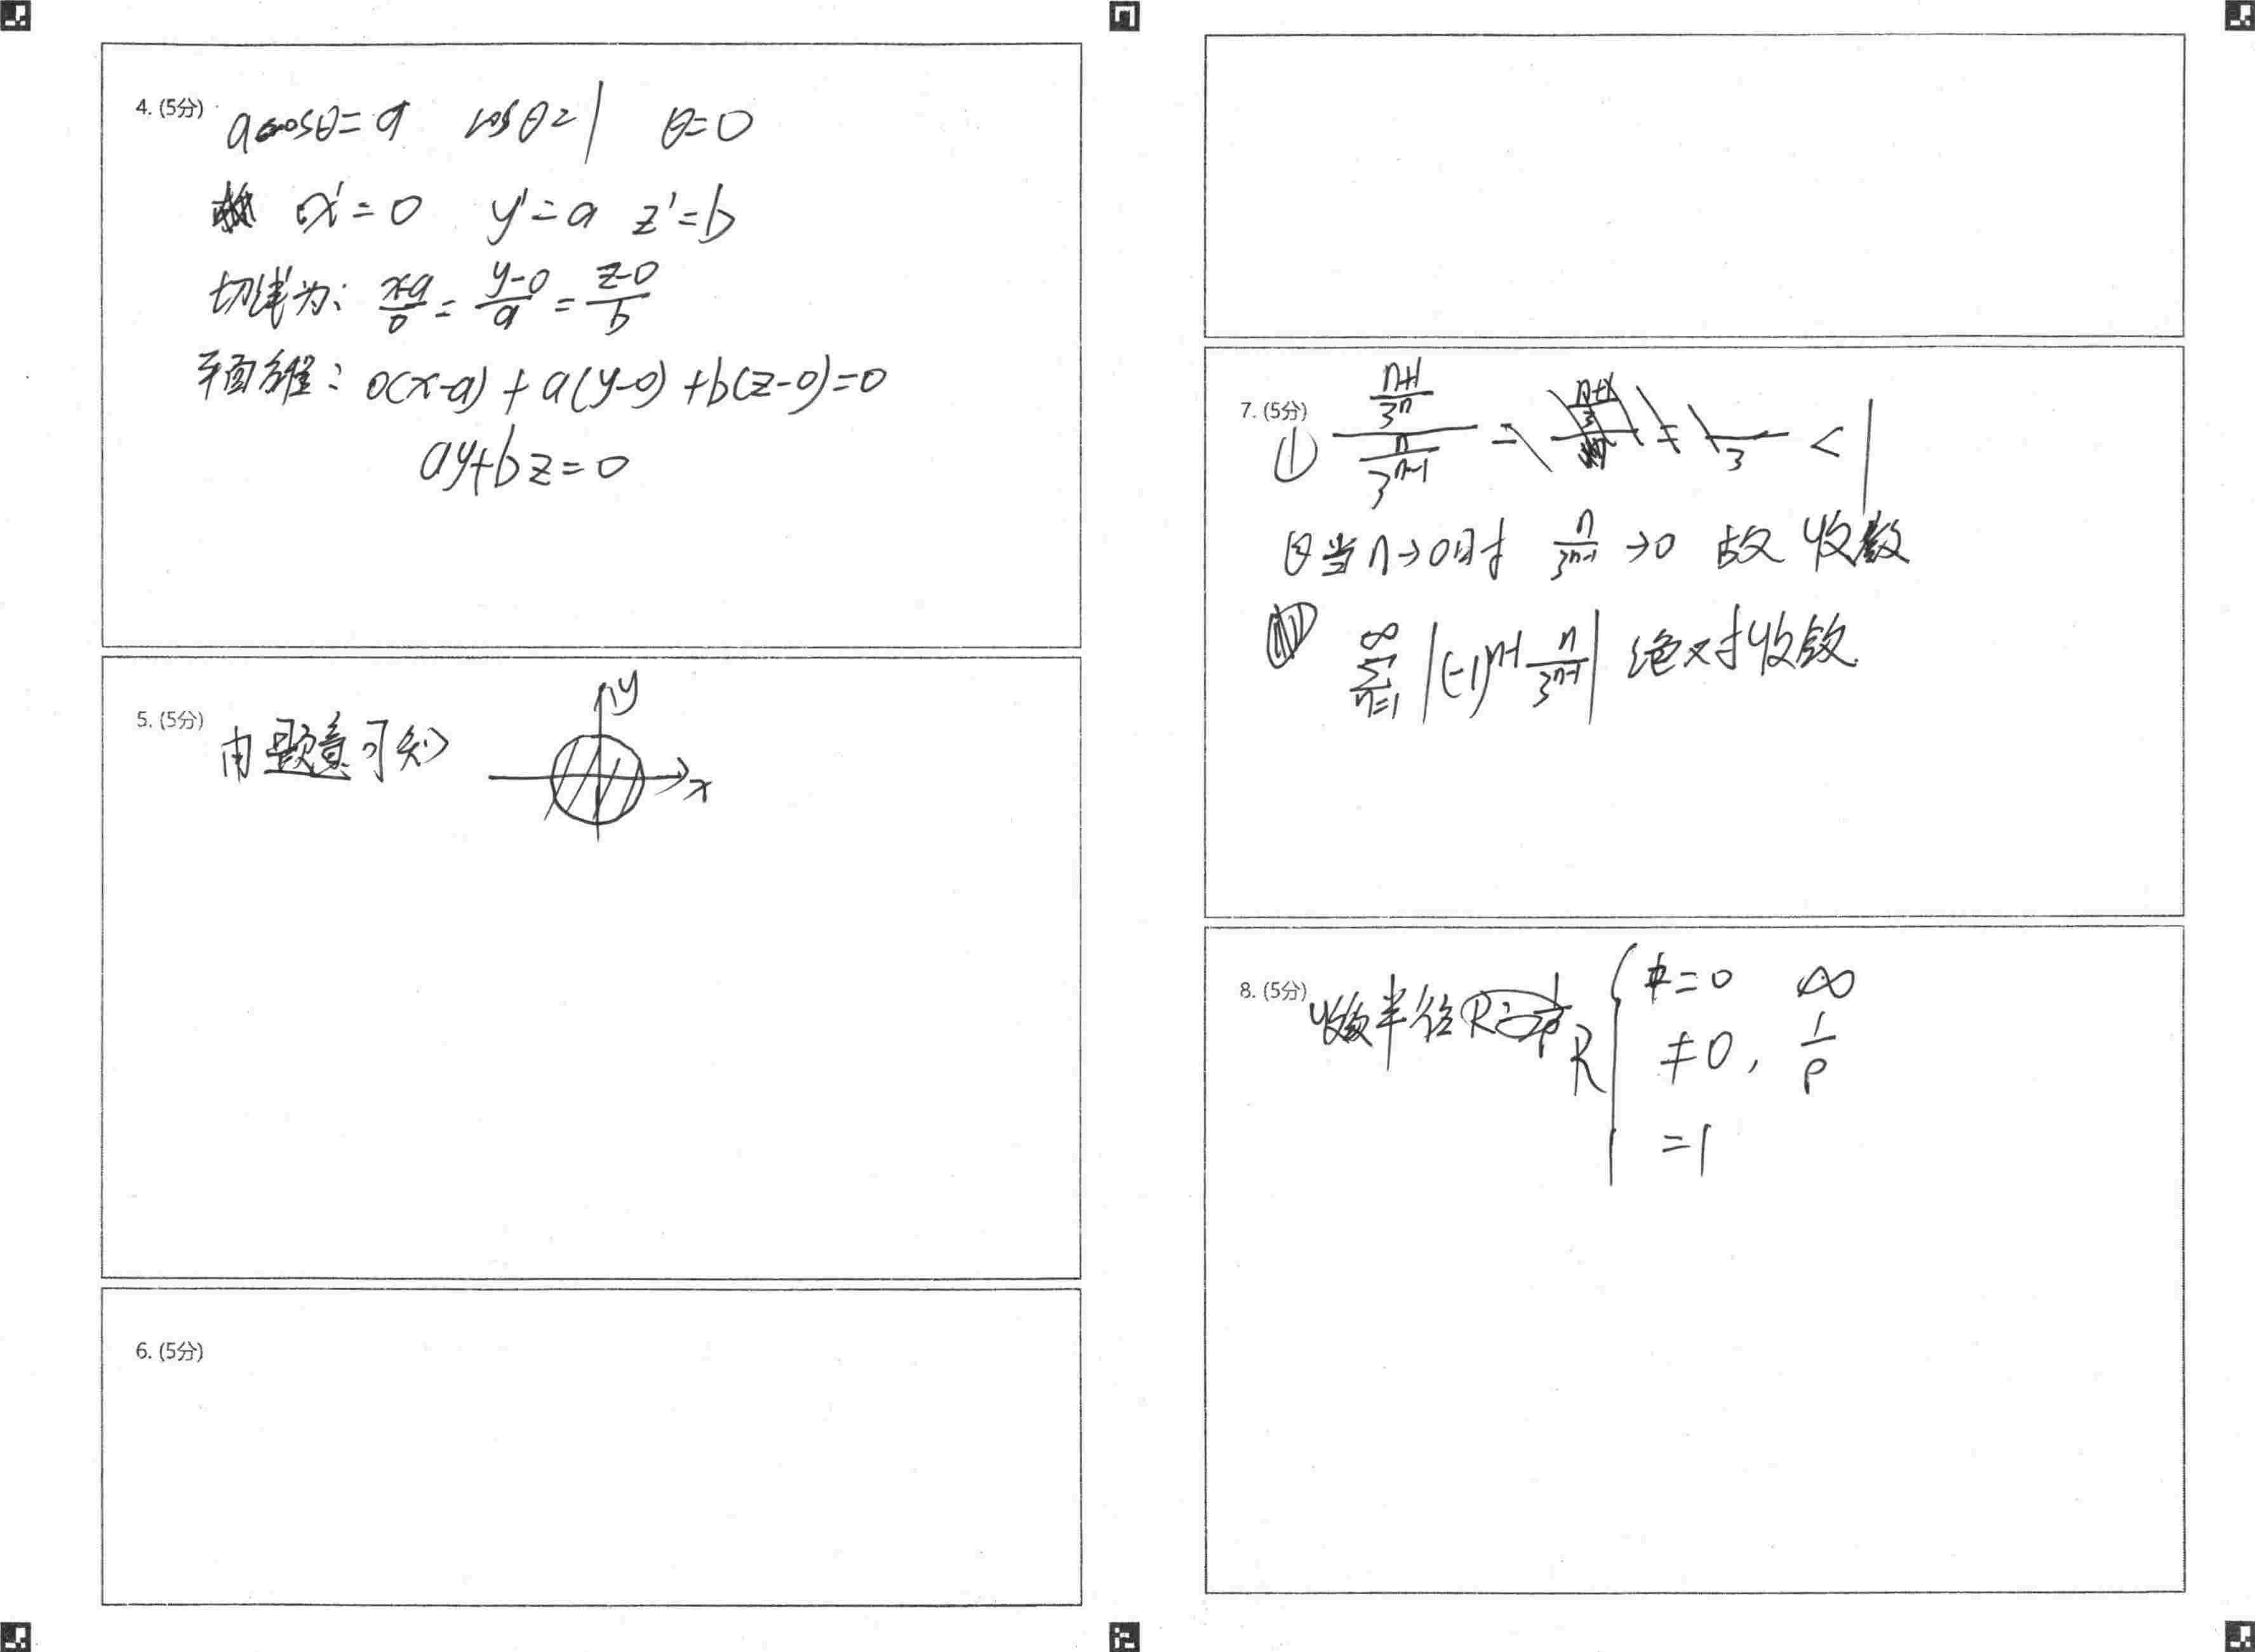 4. (5分) acosθ=a cosθ=1 θ=0
x'=0 y'=a z'=b
切线为: (x-a)/0 = (y-0)/a = (z-0)/b
平面方程: 0(x-a)+a(y-0)+b(z-0)=0
ay+bz=0
5. (5分) 由题意可知 y x
6. (5分)
7. (5分) ① ((n+1)/3^n)/(n/3^(n-1)) = 1/3 <1
当n→0时 n/3^(n-1) →0 故 收敛
∑_{n=1}^∞ |(-1)^(n-1) n/3^(n-1)| 绝对收敛
8. (5分) 收敛半径 R { =0 ∞
≠0, 1/ρ
=1